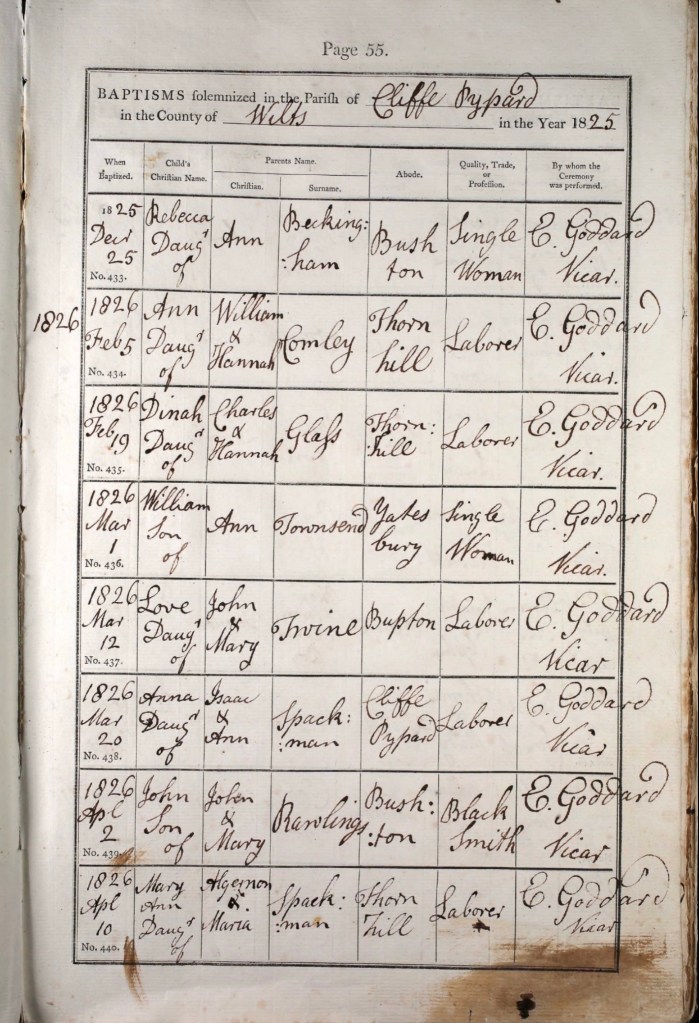 Page 55.
BAPTISMS solemnized in the Parish of Cliffe Pypard
in the County of Wilts in the Year 1825
When Baptized. Child's Christian Name. Parents Name. Christian. Surname. Abode. Quality, Trade, or Profession. By whom the Ceremony was performed.
1825 Decr 25 No. 433. Rebecca Daugr of Ann Becking: :ham Bush ton Single Woman E. Goddard Vicar.
1826
1826 Feb 5 No. 434. Ann Daugr of William & Hannah Comley Thorn hill Laborer E. Goddard Vicar.
1826 Feb 19 No. 435. Dinah Daugr of Charles & Hannah Glass Thorn: :hill Laborer E. Goddard Vicar.
1826 Mar 1 No. 436. William Son of Ann Townsend Yates bury Single Woman E. Goddard Vicar.
1826 Mar 12 No. 437. Love Daugr of John & Mary Twine Bupton Laborer E. Goddard Vicar
1826 Mar 20 No. 438. Anna Daugr of Isaac & Ann Spack: :man Cliffe Pypard Laborer E. Goddard Vicar
1826 Apl 2 No. 439. John Son of John & Mary Rawlings Bush: :ton Black Smith E. Goddard Vicar
1826 Apl 10 No. 440. Mary Ann Daugr of Algernon & Maria Spack: :man Thorn hill Laborer E. Goddard Vicar